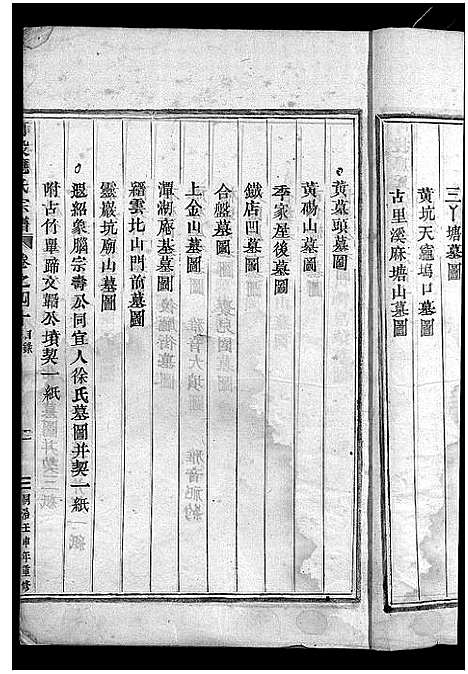 三丫塘墓圖
黄坑天竈塢口墓圖
古里溪麻塘山墓圖
黄墓頭墓圖
黄碭山墓圖
季家崖後墓圖
鐵店凹墓圖
合盤墓圖
上金山墓圖
潭湖庵基墓圖
縉雲比山門前墓圖
靈巖坑廟山墓圖
遐紹象腦宗壽公同宜人徐氏墓圖并契一紙
附古竹單蹄文韜公墳契一紙
氏宗譜 卷之四 目錄